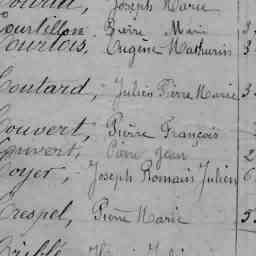 Joseph Marie
Courtillon, Pierre Marie 3
Courtois, Eugène Mathurin 3
Coutard, Julien Pierre Marie 3
Couvert, Pierre François
Couvert, Pierre Jean 2
Coyer, Joseph Romain Julien 6
Crespel, Pierre Marie 5